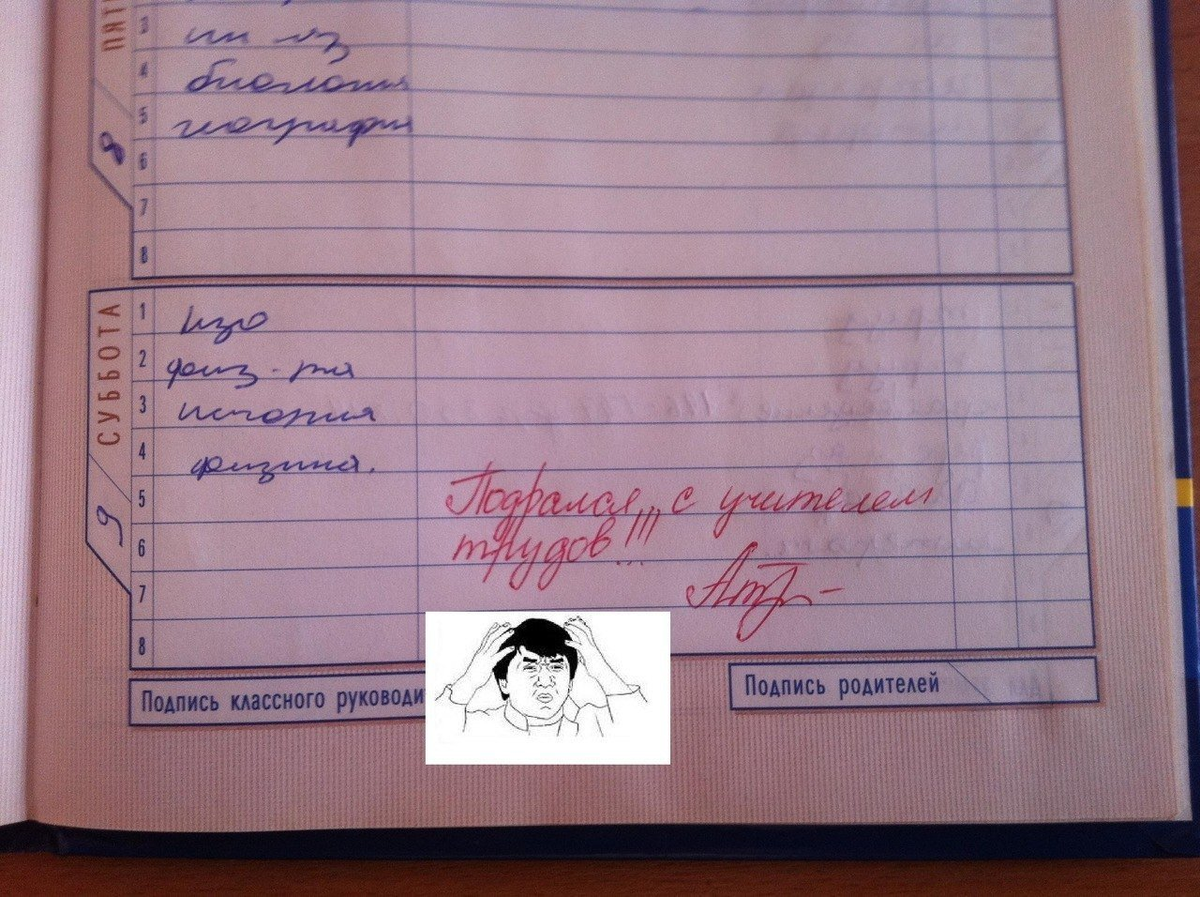 ПЯТН
3
ин яз
4
биология
5
география
8
6
7
8
СУББОТА
9
1
Изо
2
физ-ра
3
история
4
физика.
5
Подрался с учителем
6
трудов!!!
7
8
Подпись классного руководи
Подпись родителей